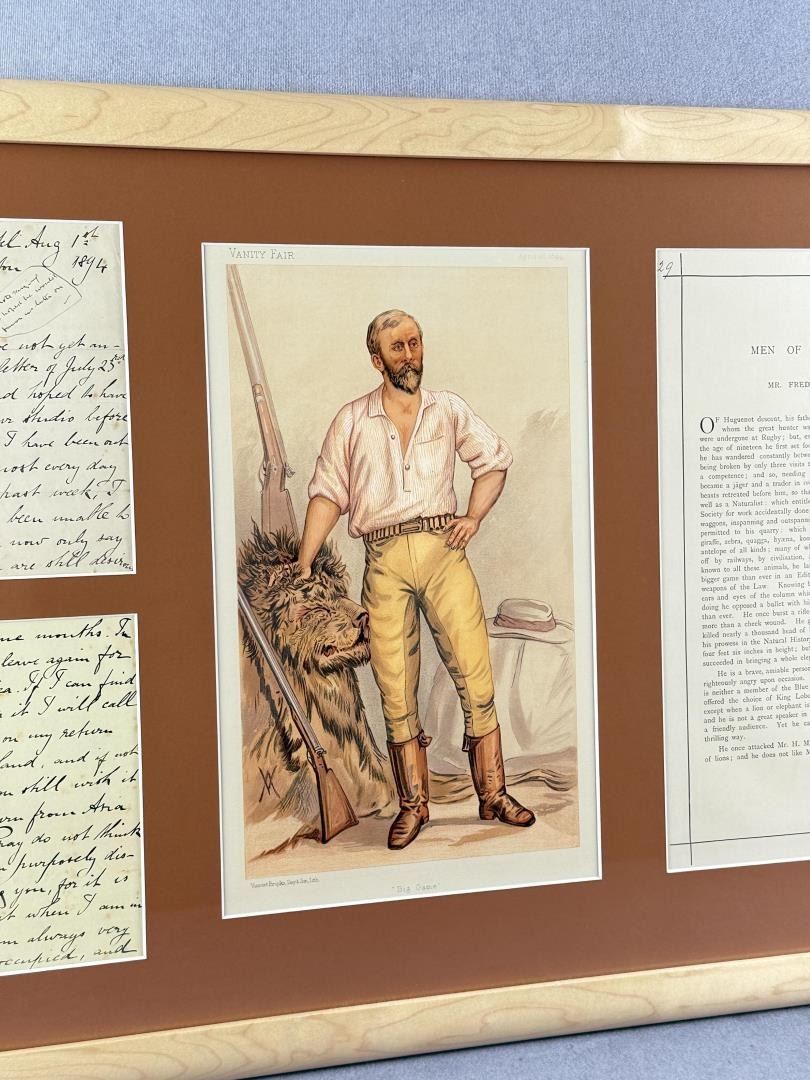 Aug 1st
1894
not yet an-
letter of July 23rd
hoped to have
studio before
I have been out
most every day
past week, I
been unable to
now only say
are still desirous
months. In
leave again for
If I can find
it I will call
on my return
land, and if not
still wish it
from Asia
Pray do not think
purposely dis-
you, for it is
when I am in
always very
occupied, and
VANITY FAIR
"Big Game"
Vincent Brooks, Day & Son, Lith.
29
MEN OF
MR. FRED
OF Huguenot descent, his fath
whom the great hunter wa
were undergone at Rugby; but, e
the age of nineteen he first set foo
he has wandered constantly betwe
being broken by only three visits t
a competence; and so, needing
became a jäger and a trador in
beasts retreated before him, so tha
well as a Naturalist: which entitle
Society for work accidentally done
waggons, inspanning and outspann
permitted to his quarry: which
giraffe, zebra, quagga, hyæna, koo
antelope of all kinds; many of wh
off by railways, by civilisation, a
known to all these animals, he la
bigger game than ever in an Edit
weapons of the Law. Knowing
ears and eyes of the column whic
doing he opposed a bullet with hi
than ever. He once burst a rifle
more than a cheek wound. He
killed nearly a thousand head of
his prowess in the Natural History
four feet six inches in height; but
succeeded in bringing a whole ele
He is a brave, amiable person
righteously angry upon occasion.
is neither a member of the Blue
offered the choice of King Lobe
except when a lion or elephant is
and he is not a great speaker in
a friendly audience. Yet he ca
thrilling way.
He once attacked Mr. H. M.
of lions; and he does not like M